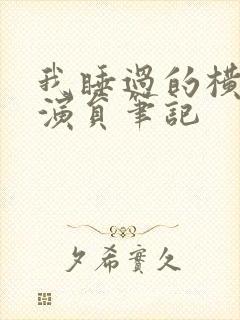 我睡過的橫
演員筆記
夕希實久